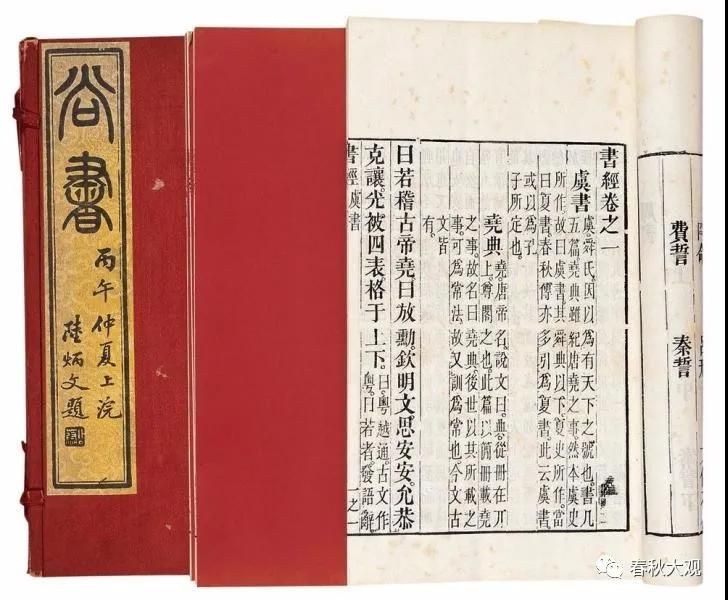 尚書
丙午仲夏上浣
陸炳文題
費誓 秦誓
書經卷之一
虞書 虞。舜氏。因以爲有天下之號也。書凡
五篇。堯典雖紀唐堯之事。然本虞史
所作。故曰虞書。其舜典以下。夏史所作。當
曰夏書。春秋傳亦多引爲夏書。此云虞書。
或以爲孔
子所定也。
堯典 堯。唐帝名。說文曰。典。從冊在丌
上。尊閣之也。此篇以簡冊載堯
之事。故名曰堯典。後世以其所載之
事。可爲常法。故又訓爲常也。今文古
文皆
有。
曰若稽古帝堯。曰放勳。欽明文思安安。允恭
克讓。光被四表。格于上下。曰。粵越通。古文作
粵。曰若者。發語辭
書經虞書 一之一
春秋大观